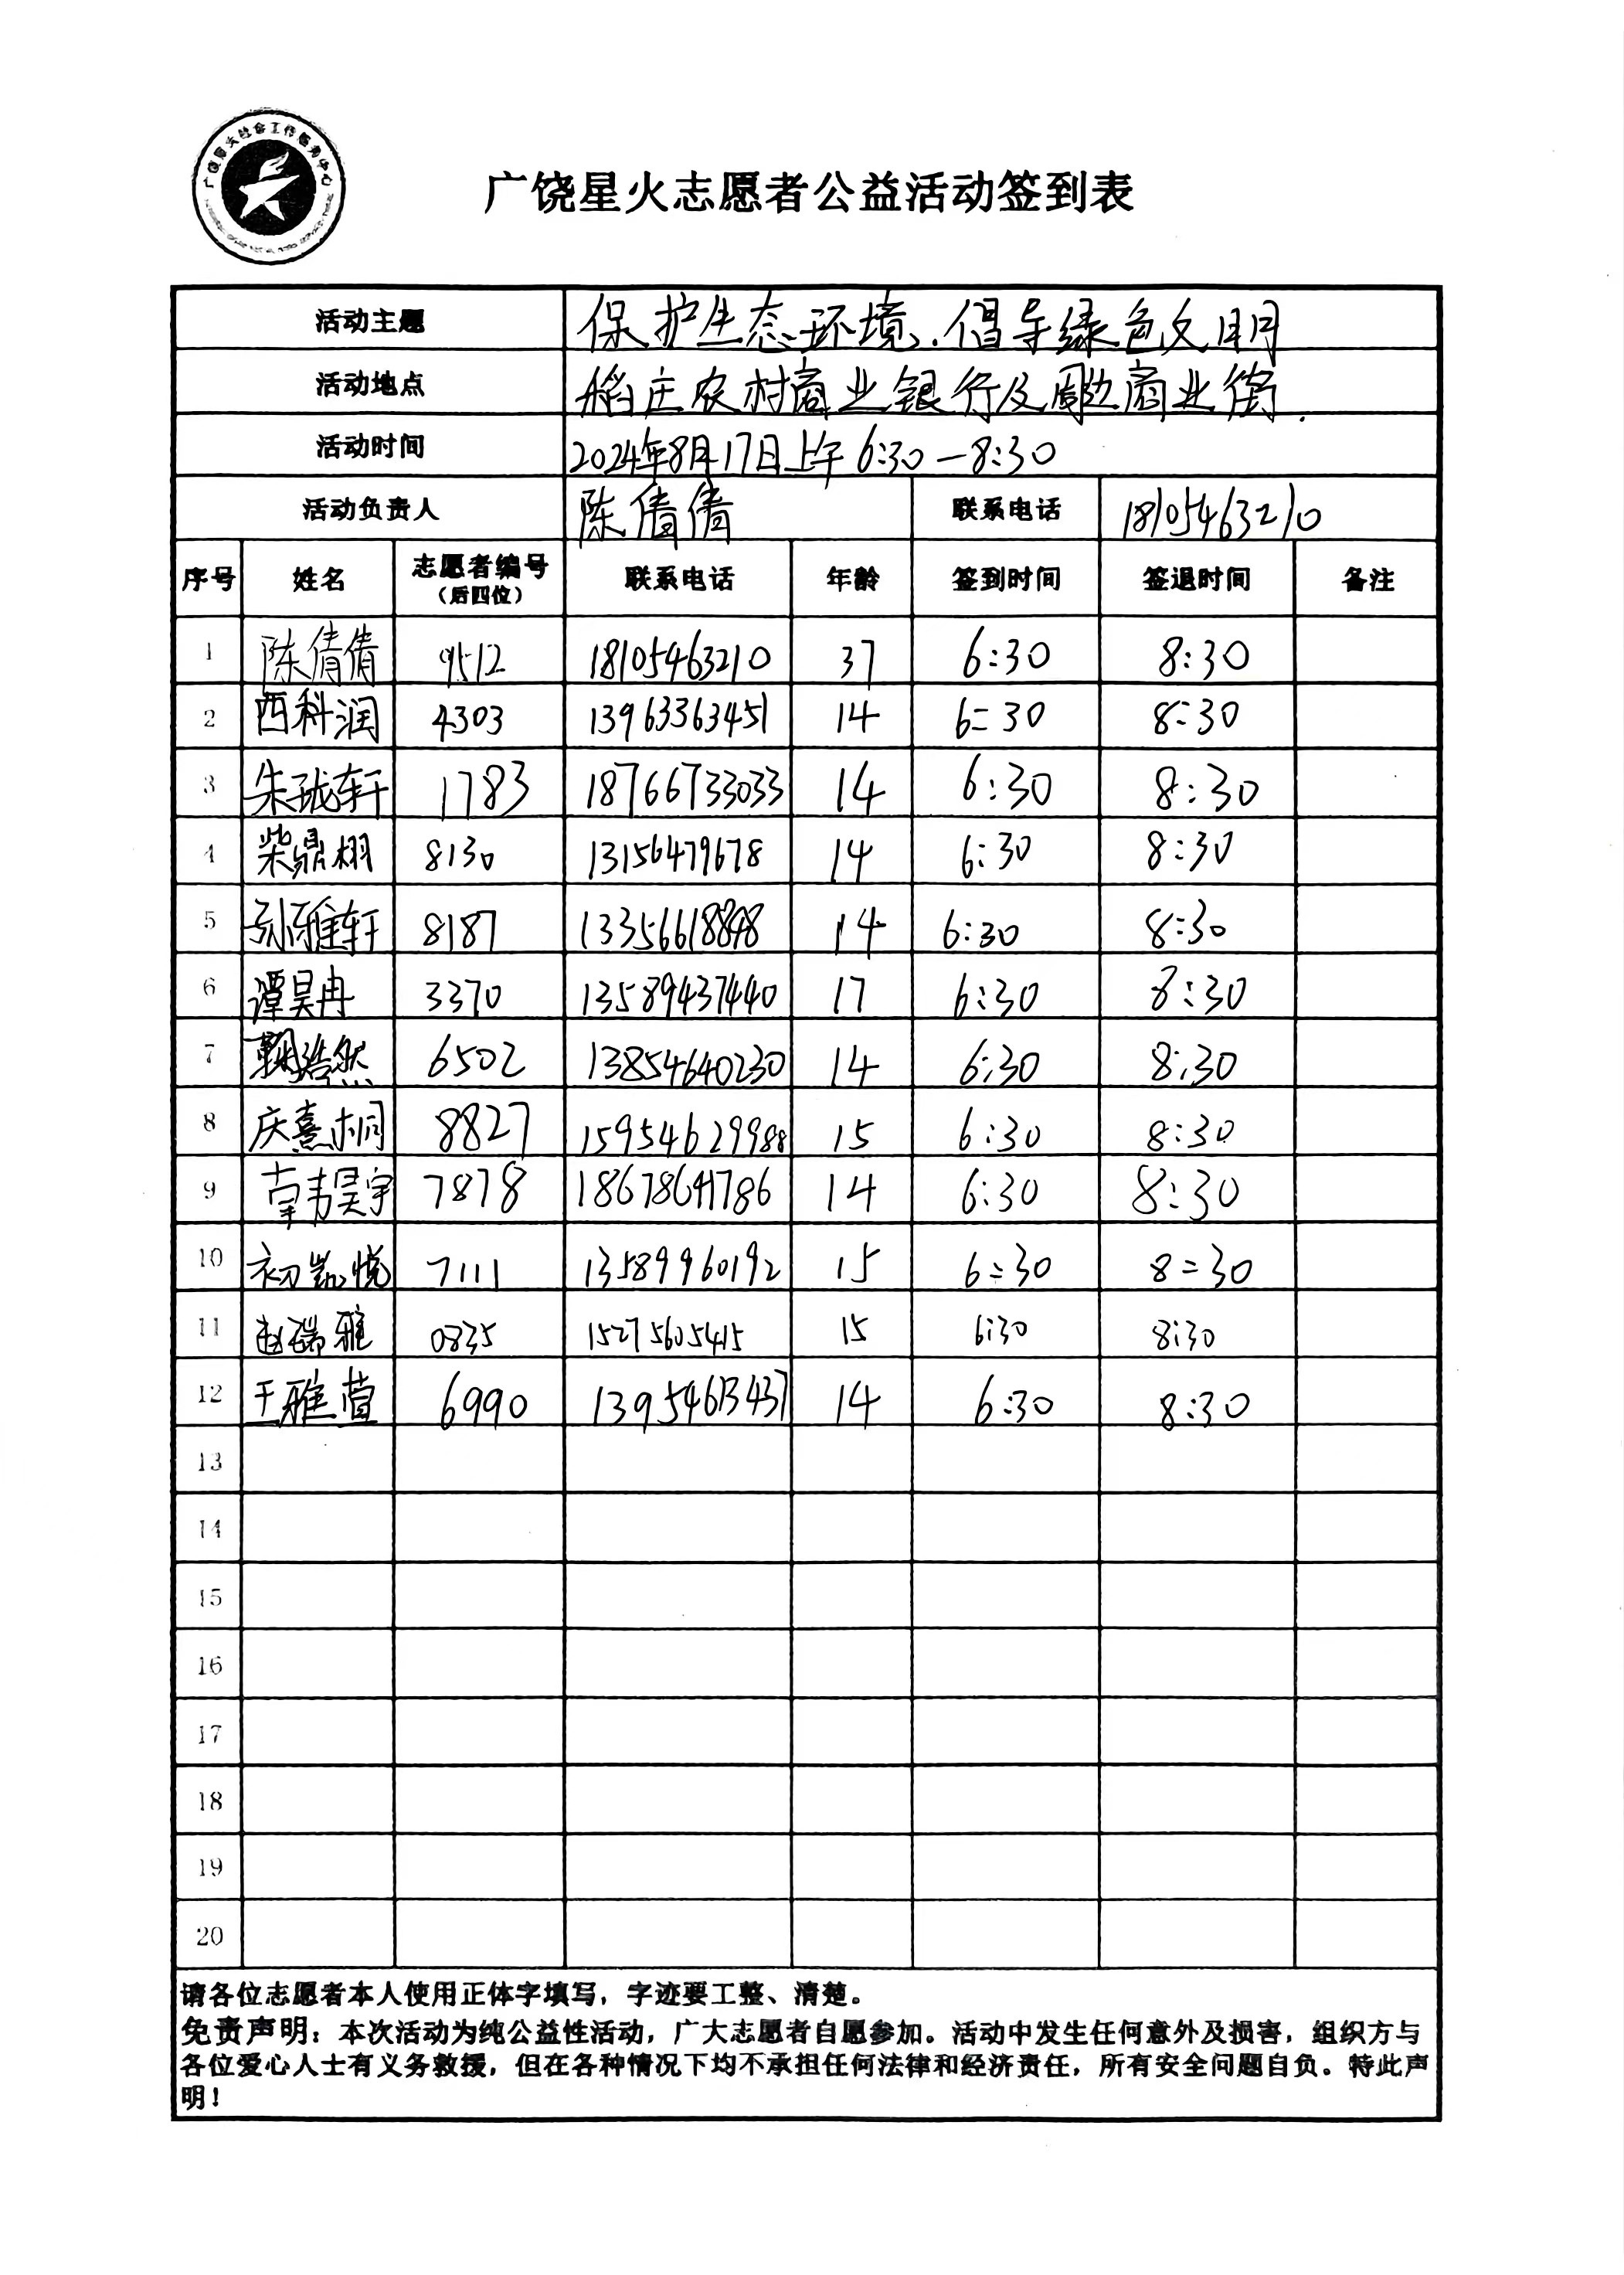 广饶星火志愿者公益活动签到表
活动主题 保护生态环境、倡导绿色文明
活动地点 稻庄农村商业银行及周边商业街.
活动时间 2024年8月17日上午6:30—8:30
活动负责人 陈倩倩 联系电话 18105463210
序号 姓名 志愿者编号（后四位） 联系电话 年龄 签到时间 签退时间 备注
1 陈倩倩 9512 18105463210 37 6:30 8:30
2 西科润 4303 13963363451 14 6:30 8:30
3 朱珑轩 1783 18766733033 14 6:30 8:30
4 柴鼎栩 8130 13156479678 14 6:30 8:30
5 孙雅轩 8187 14 6:30 8:30
6 谭昊冉 3370 13589437440 17 6:30 8:30
7 鞠浩然 6502 13854640230 14 6:30 8:30
8 庆熹桐 8827 15954629988 15 6:30 8:30
9 昊宇 7878 18678641786 14 6:30 8:30
10 初凯悦 7111 13589960192 15 6:30 8:30
11 赵瑞雅 0835 15275605415 15 6:30 8:30
12 王雅萱 6990 13954613437 14 6:30 8:30
13
14
15
16
17
18
19
20
请各位志愿者本人使用正体字填写，字迹要工整、清楚。
免责声明：本次活动为纯公益性活动，广大志愿者自愿参加。活动中发生任何意外及损害，组织方与
各位爱心人士有义务救援，但在各种情况下均不承担任何法律和经济责任，所有安全问题自负。特此声
明！